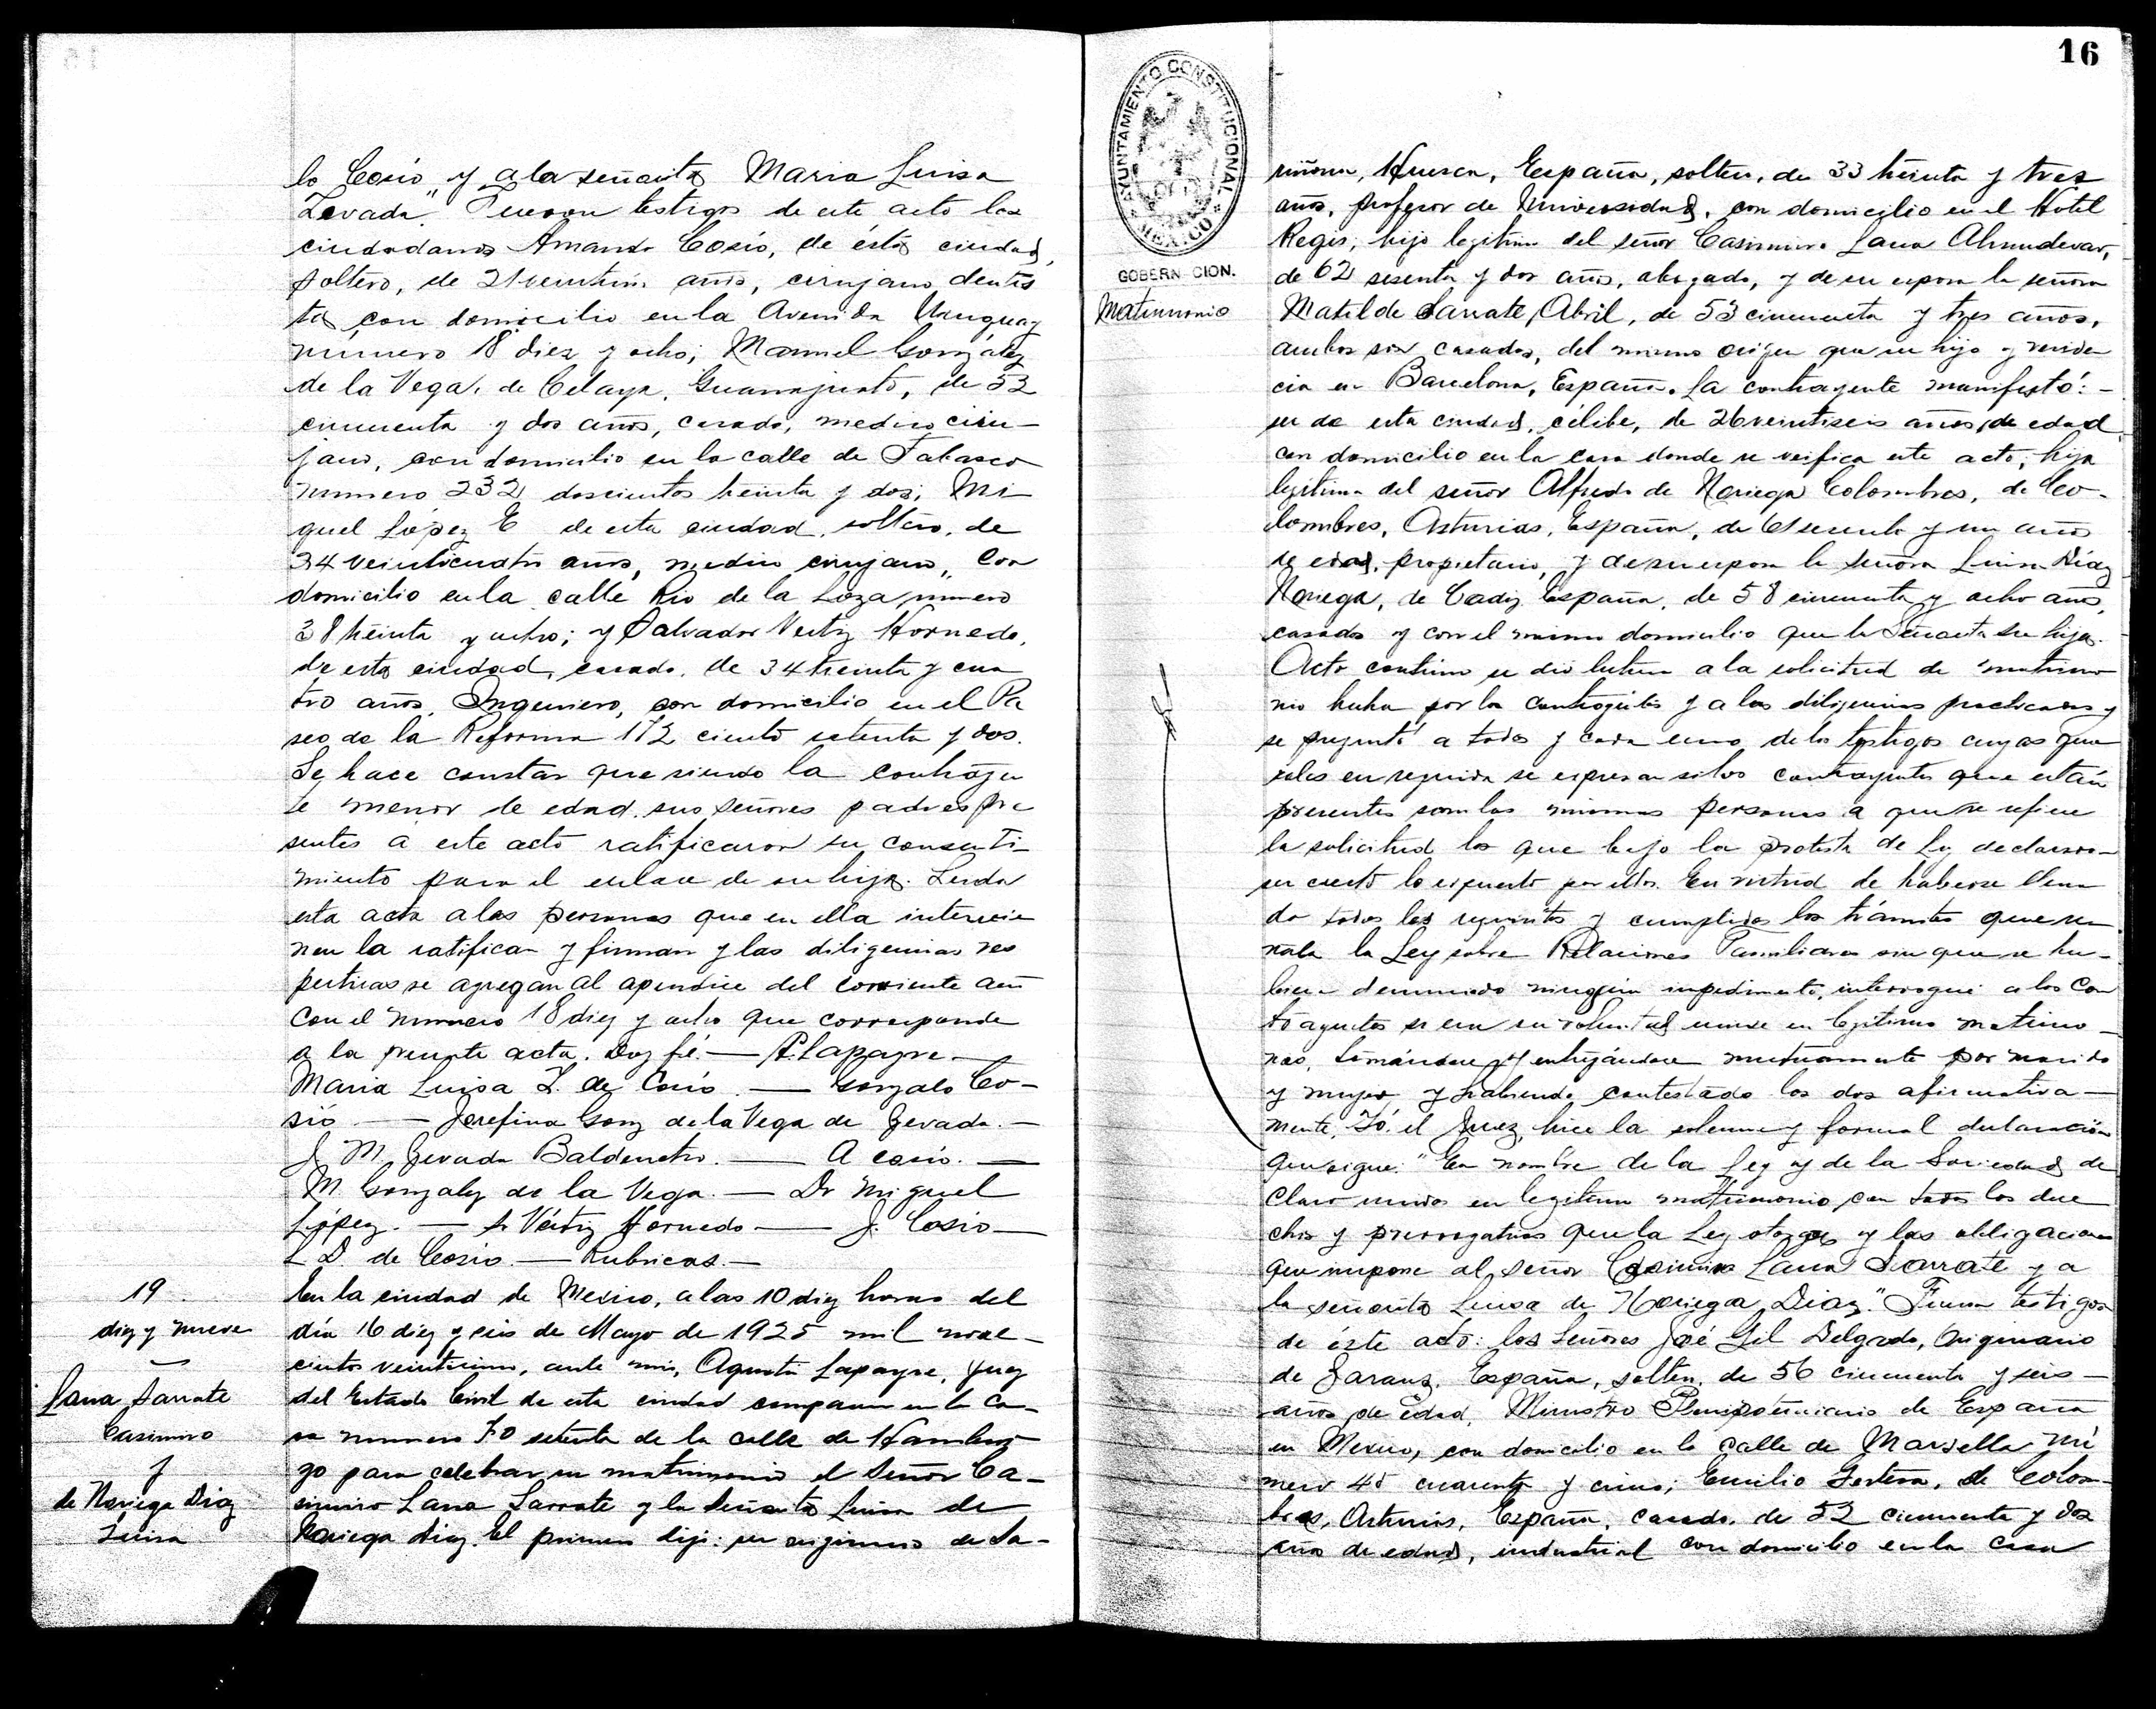 lo Cosío" y a la señorita Maria Luisa
Zevada". Fueron testigos de este acto los
ciudadanos Amando Cosío, de ésta ciudad,
soltero, de 21 veintiún años, cirujano dentis
ta con domicilio en la Avenida Uruguay
número 18 diez y ocho; Manuel González
de la Vega, de Celaya, Guanajuato, de 52
cincuenta y dos años, casado, medico ciru-
jano, con domicilio en la calle de Tabasco
número 232 doscientos treinta y dos; Mi
guel López E de esta ciudad, soltero, de
24 veinticuatro años, medico cirujano, con
domicilio en la calle Rio de la Loza número
38 treinta y ocho; y Salvador Vertiz Hornedo,
de esta ciudad, casado, de 34 treinta y cua
tro años, Ingeniero, con domicilio en el Pa
seo de la Reforma 172 ciento setenta y dos.
Se hace constar que siendo la contrayen
te menor de edad, sus señores padres pre
sentes a este acto ratificaron su consenti-
miento para el enlace de su hija. Leida
esta acta a las personas que en ella intervie
nen la ratifican y firman y las diligencias res
pectivas se agregan al apendice del corriente año
con el número 18 diez y ocho que corresponde
a la presente acta. Doy fé. — A. Lapayre —
Maria Luisa Z. de Cosío — Gonzalo Co-
sío — Josefina Gonz de la Vega de Zevada. —
J. M. Zevada Balden — A Cosío. —
M. Gonzalez de la Vega. — Dr Miguel
López. — S. Vértiz Hornedo — J. Cosío —
L D. de Cosío. — Rubricas. —
19
diez y nueve
Lana Sarrate
Casimiro
y
de Noriega Diaz
Luisa
En la ciudad de Mexico, a las 10 diez horas del
día 16 diez y seis de Mayo de 1925 mil nove-
cientos veinticinco, ante mi, Agustín Lapayre, Juez
del Estado Civil de esta ciudad comparecen en la ca-
sa numero 70 setenta de la calle de Hambur
go para celebrar su matrimonio el Señor Ca-
simiro Lana Sarrate y la Señorita Luisa de
Noriega Diaz. El primero dijo: ser originario de Sa-
16
AYUNTAMIENTO CONSTITUCIONAL
MEXICO
GOBERNACION.
Matrimonio
riñena, Huesca, España, soltero, de 33 treinta y tres
años, profesor de Universidad, con domicilio en el Hotel
Regis, hijo legítimo del señor Casimiro Lana Almudevar,
de 62 sesenta y dos años, abogado, y de su esposa la señora
Matilde Sarrate Abril, de 53 cincuenta y tres años,
ambos son casados, del mismo origen que su hijo y residen
cia en Barcelona, España. La contrayente manifestó: -
ser de esta ciudad, célibe, de 26 veintiseis años de edad,
con domicilio en la casa donde se verifica este acto, hija
legítima del señor Alfredo de Noriega Colombres, de Co-
lombres, Asturias, España, de 61 sesenta y un años
de edad, propietario, y de su esposa la señora Luisa Díaz
Noriega, de Cadiz España, de 58 cincuenta y ocho años,
casados y con el mismo domicilio que la Señorita su hija.
Acto continuo se dió lectura a la solicitud de matrimo
nio hecha por los contrayentes y a las diligencias practicadas y
se preguntó a todos y cada uno de los testigos cuyas gene
rales en seguida se expresan si los contrayentes que están
presentes son las mismas personas a que se refiere
la solicitud los que bajo la protesta de Ley declararon
ser cierto lo expuesto por ellos. En virtud de haberse llena
do todos los requisitos y cumplidos los trámites que se
ñala la Ley sobre Relaciones Familiares sin que se hu-
biera denunciado ningún impedimento, interrogué a los con
trayentes si era su voluntad unirse en legitimo matrimo-
nio, tomándose y entregándose mutuamente por marido
y mujer y habiendo contestado los dos afirmativa-
mente, Yo, el Juez, hice la solemne y formal declaración
que sigue: "En nombre de la Ley y de la Sociedad de
claro unidos en legitimo matrimonio con todos los dere
chos y prerrogativas que la Ley otorga y las obligaciones
que impone al señor Casimiro Lana Sarrate y a
la señorita Luisa de Noriega Diaz." Fueron testigos
de éste acto: los Señores José Gil Delgado, originario
de Zarauz, España, soltero, de 56 cincuenta y seis —
años de edad, Ministro Plenipotenciario de España
en Mexico, con domicilio en la calle de Marsella nú
mero 45 cuarenta y cinco; Emilio , de Colom-
bres, Asturias, España, casado, de 52 cincuenta y dos
años de edad, industrial con domicilio en la casa